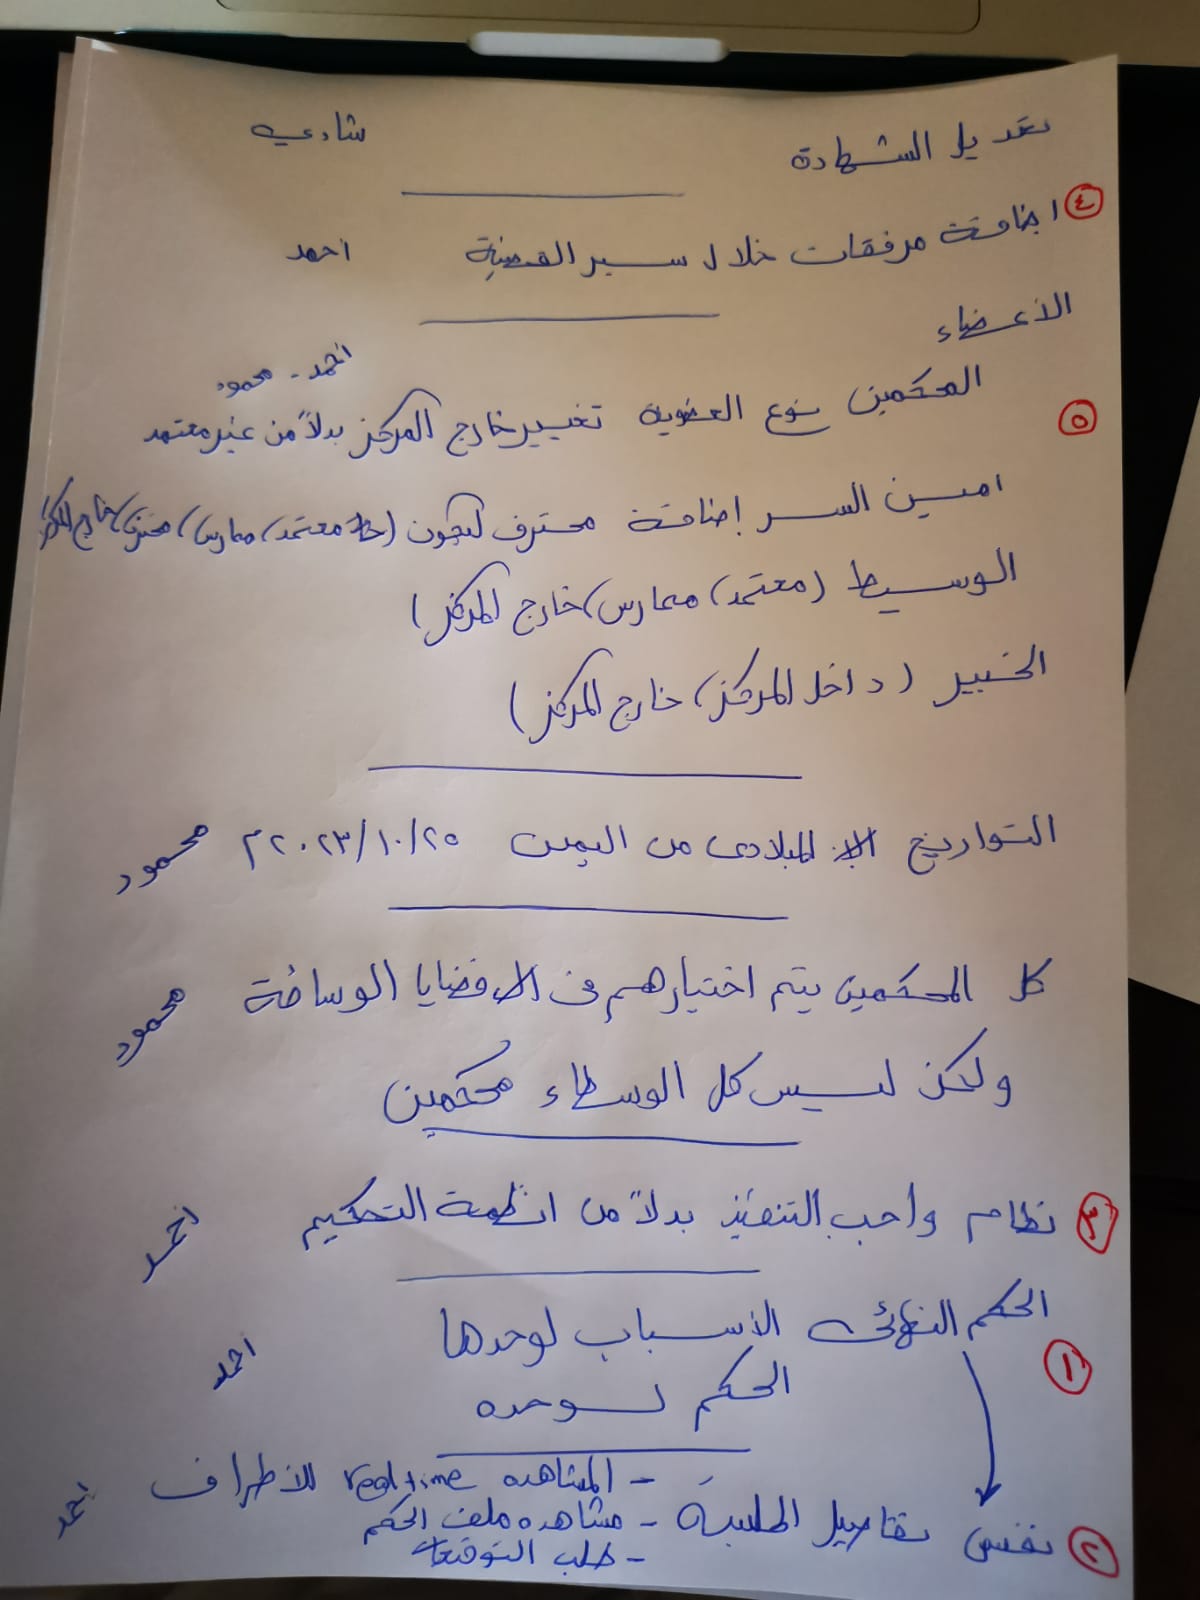 تعديل الشهادة شادي
٤ اضافة مرفقات خلال سير القضية احمد
الأعضاء
احمد - محمود
٥ المحكمين نوع العضوية تغيير خارج المركز بدلاً من غير معتمد
امين السر إضافة محترف لتكون (معتمد، ممارس، محترف، خارج المركز)
الوسيط (معتمد، ممارس، خارج المركز)
الخبير (داخل المركز، خارج المركز)
التواريخ الميلادى من اليمين ٢٠٢٣/١٠/٢٥ م محمود
كل المحكمين يتم اختيارهم فى قضايا الوساطة محمود
ولكن ليس كل الوسطاء محكمين
٣ نظام واجب التنفيذ بدلاً من انظمة التحكيم احمد
١ الحكم النهائى الأسباب لوحدها
الحكم لوحده احمد
- المشاهده real time للأطراف
٢ نفس تفاصيل الجلسة - مشاهده ملف الحكم احمد
- طلب التوقيعات